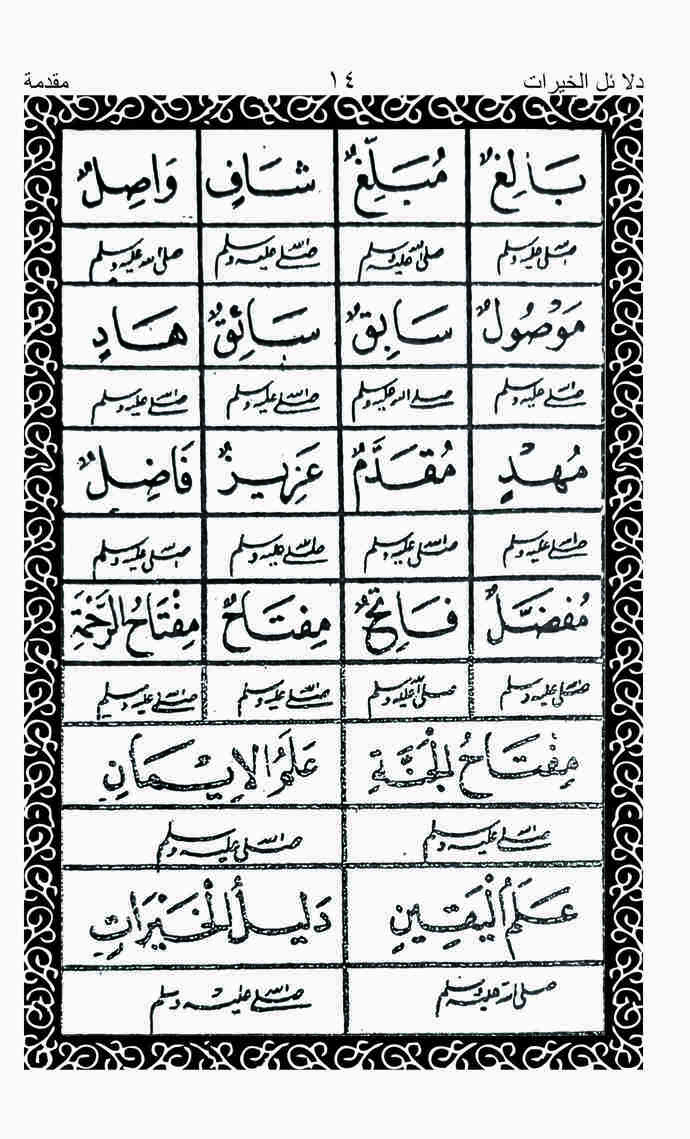 دلا ئل الخيرات ١٤ مقدمة
بَالِغٌ مُبَلِّغٌ شَافٍ وَاصِلٌ
صلى الله عليه وسلم صلى الله عليه وسلم صلى الله عليه وسلم صلى الله عليه وسلم
مَوْصُولٌ سَابِقٌ سَائِقٌ هَادٍ
صلى الله عليه وسلم صلى الله عليه وسلم صلى الله عليه وسلم صلى الله عليه وسلم
مُهْدٍ مُقَدَّمٌ عَزِيزٌ فَاضِلٌ
صلى الله عليه وسلم صلى الله عليه وسلم صلى الله عليه وسلم صلى الله عليه وسلم
مُفَضَّلٌ فَاتِحٌ مِفْتَاحٌ مِفْتَاحُ الرَّحْمَةِ
صلى الله عليه وسلم صلى الله عليه وسلم صلى الله عليه وسلم صلى الله عليه وسلم
مِفْتَاحُ الْجَنَّةِ عَلَمُ الْإِيْمَانِ
صلى الله عليه وسلم صلى الله عليه وسلم
عَلَمُ الْيَقِينِ دَلِيلُ الْخَيْرَاتِ
صلى الله عليه وسلم صلى الله عليه وسلم